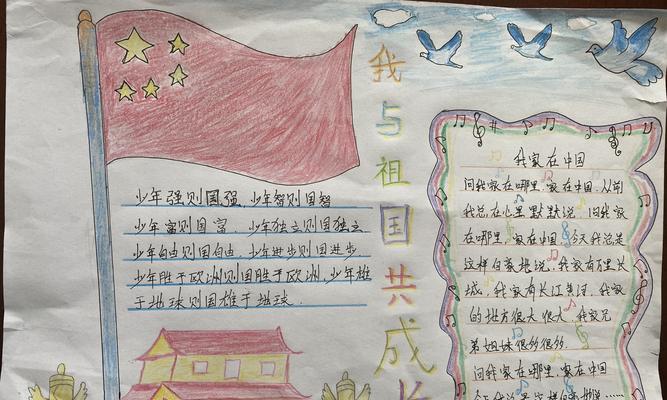 我与祖国共成长
少年强则国强,少年智则国智
少年富则国富,少年独立则国独立
少年自由则国自由,少年进步则国进步
少年胜于欧洲则国胜于欧洲,少年雄
于地球则国雄于地球.
我家在中国
问我家在哪里,家在中国,从前
我总在心里默默说,问我家
在哪里,家在中国,今天我总是
这样自豪地说,我家有万里长
城,我家有长江黄河,我家
的地方很大很大,我家兄
弟姐妹很多很多.
问我家在哪里,家在中国
今天我总是这样自豪地说……